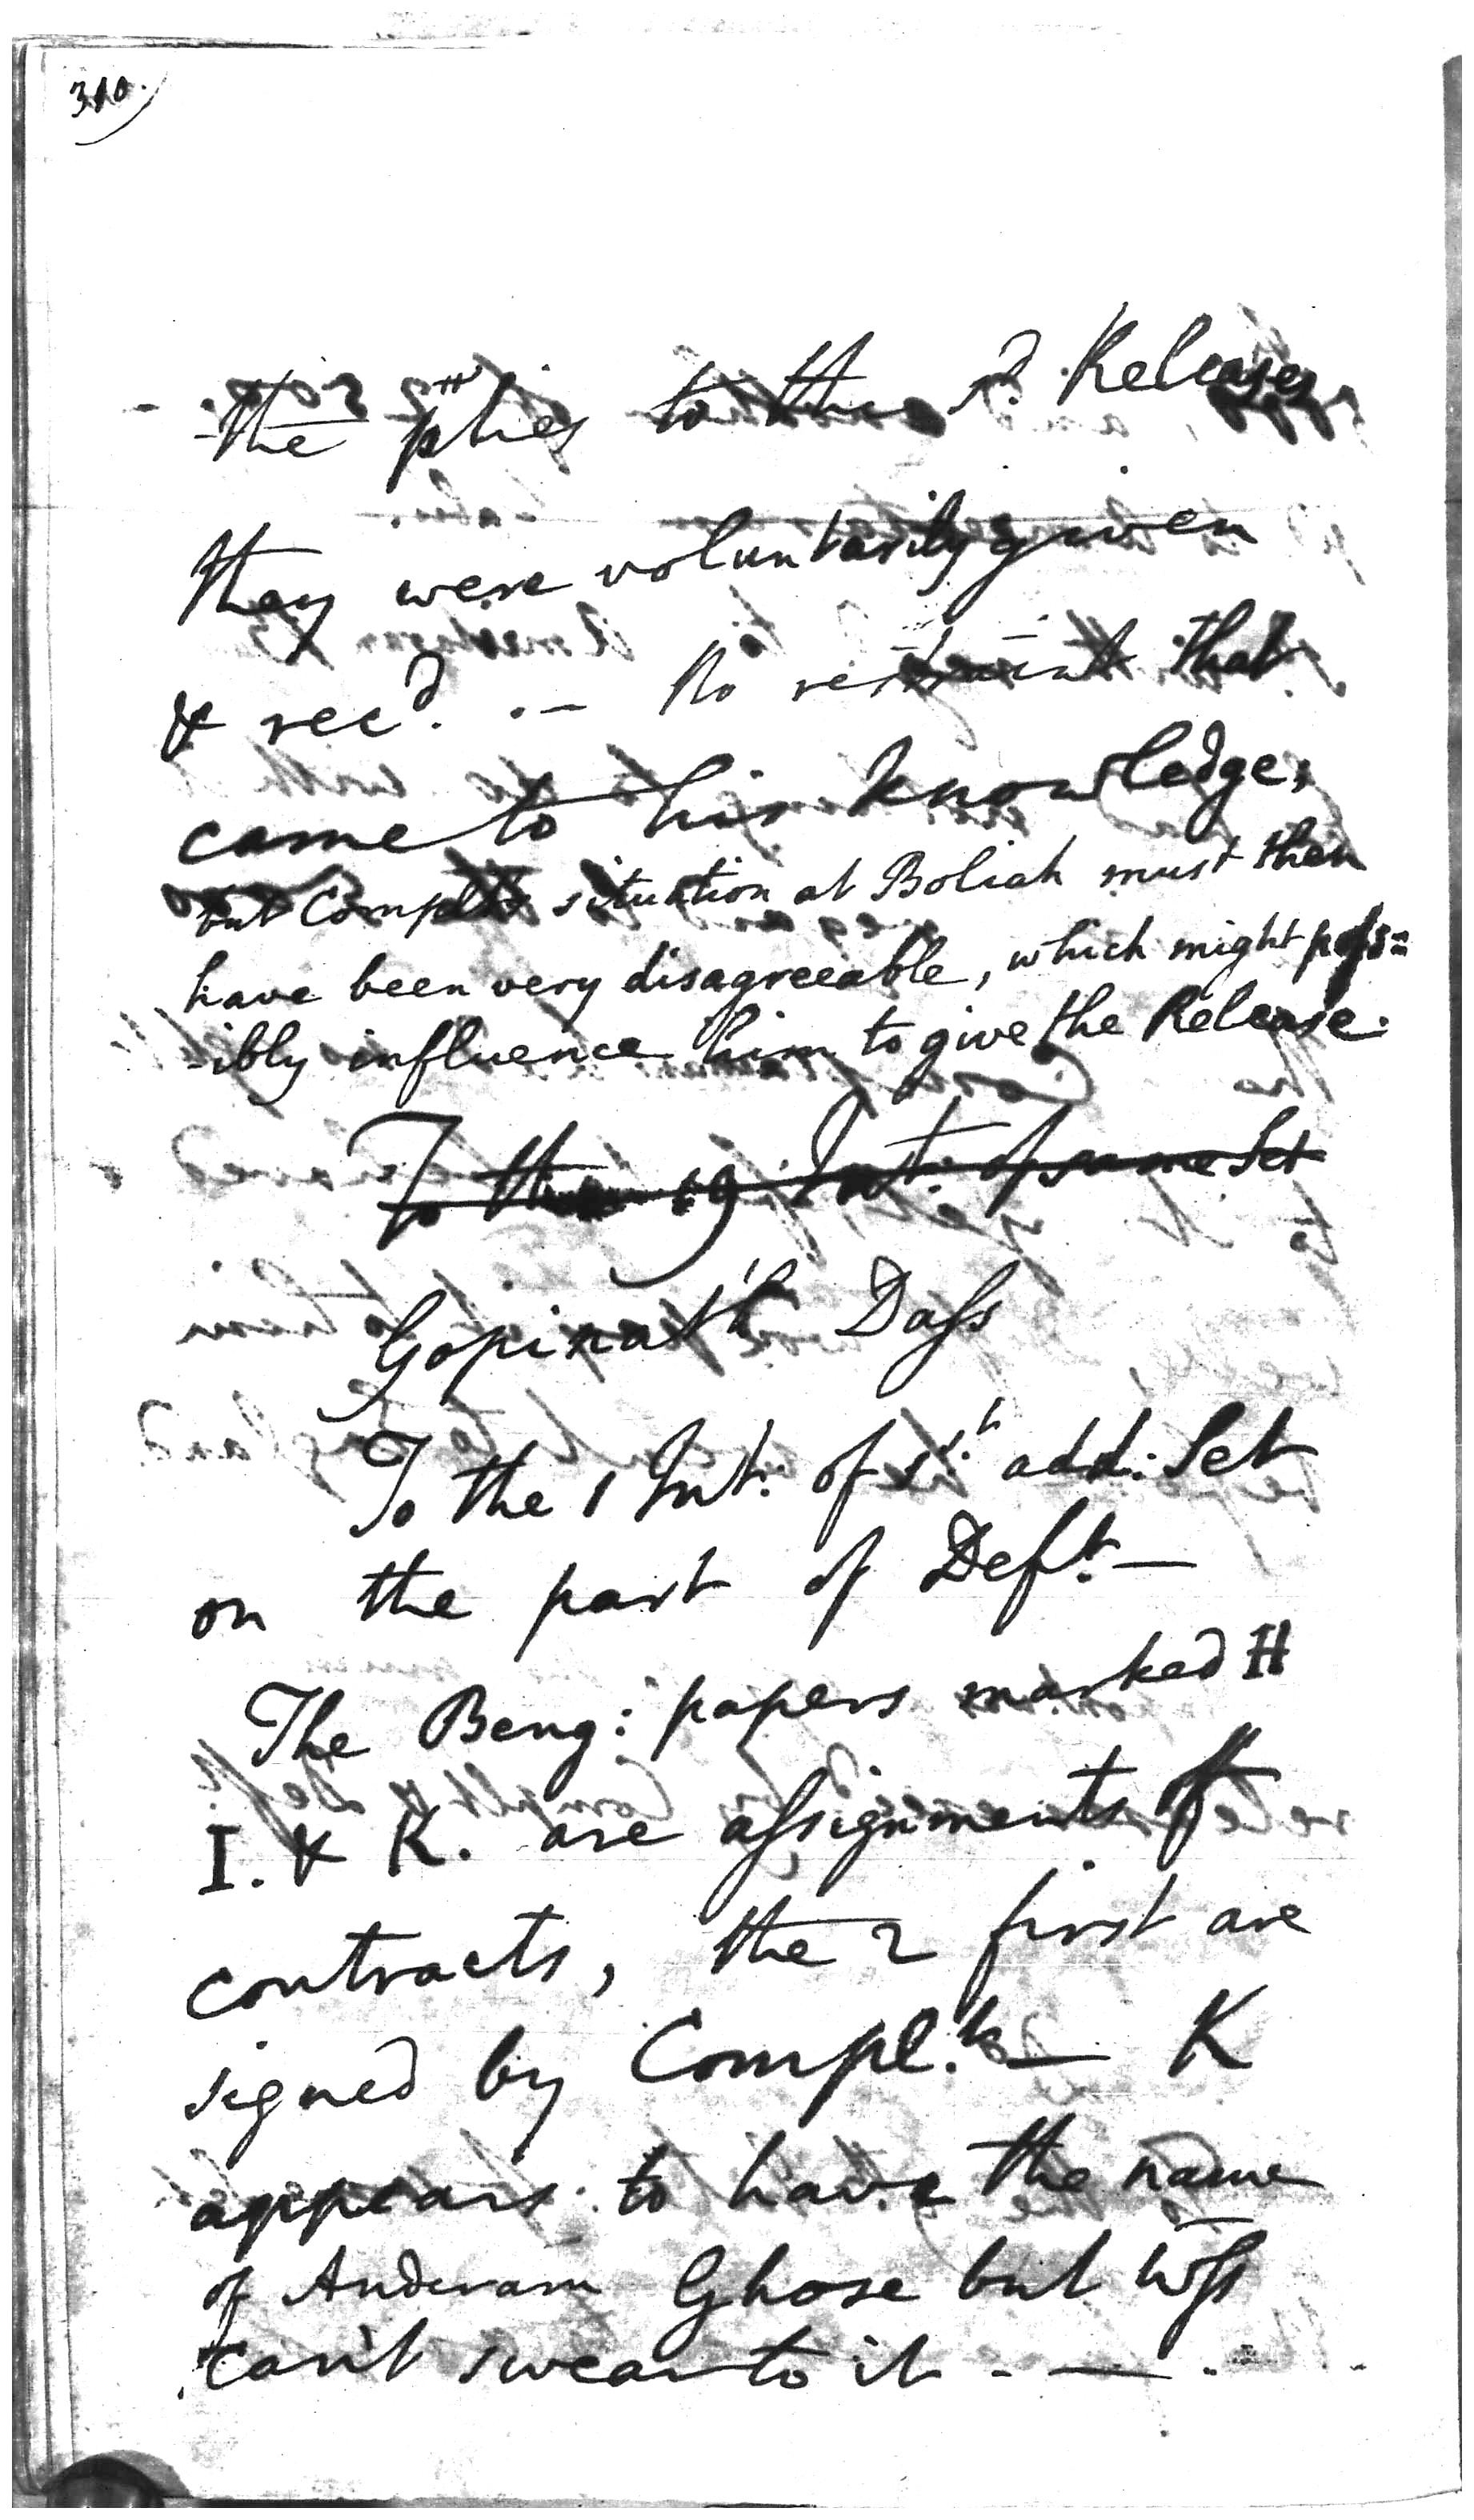 310.
the pties to the sd. Releases
they were voluntarily given
& recd. .— No restraint that
came to his knowledge,
but Complts situation at Boliah must then
have been very disagreeable, which might poss=
-ibly influence him to give the Release.
To the 19 Int. of same Set
Gopinath Dass
To the 1 Int: of 1st. add: Set
on the part of Deft.—
The Beng: papers marked H
I. & K. are assignments of
contracts, the 2 first are
signed by Complt.— K
appears to have the name
of Anderam Ghose but wss
can't swear to it - — .